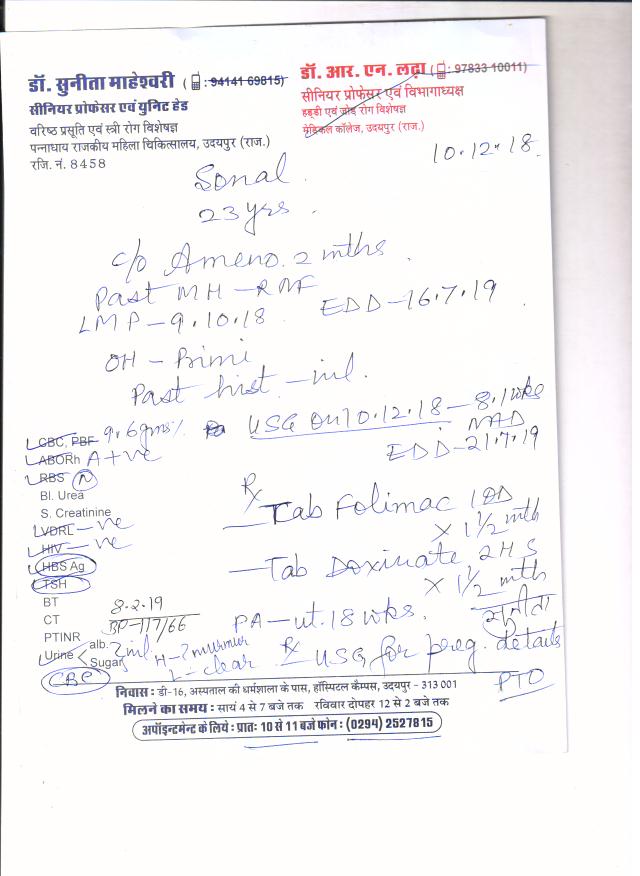 डॉ. सुनीता माहेश्वरी ( : 94141 69815)
सीनियर प्रोफेसर एवं युनिट हेड
वरिष्ठ प्रसूति एवं स्त्री रोग विशेषज्ञ
पन्नाधाय राजकीय महिला चिकित्सालय, उदयपुर (राज.)
रजि. नं. 8458
डॉ. आर. एन. लढ़ा ( : 97833 10011)
सीनियर प्रोफेसर एवं विभागाध्यक्ष
हड्डी एवं जोड़ रोग विशेषज्ञ
मेडिकल कॉलेज, उदयपुर (राज.)
10.12.18
Sonal
23 yrs
c/o Ameno. 2 mths
Past MH - RNF
LMP - 9.10.18 EDD - 16.7.19
OH - Primi
Past hist - nil.
CBC, PBF 9.6 gms% USG on 10.12.18 - 8.1 wks
NAD
ABORh A+ve EDD - 21.7.19
RBS N
Bl. Urea
S. Creatinine
VDRL - ve
HIV - ve
HBS Ag
TSH
BT
CT
PTINR
Urine alb. Sugar nil
CBC
Rx
Tab Folimac 1 OD
x 1 1/2 mth
Tab Doxinate 2 HS
x 1 1/2 mth
सुनीता
8.2.19
BP - 117/66 PA - ut. 18 wks.
H - ? murmur
L - clear Rx USG for preg. details
PTO
निवास : डी-16, अस्पताल की धर्मशाला के पास, हॉस्पिटल कैम्पस, उदयपुर - 313 001
मिलने का समय : सायं 4 से 7 बजे तक रविवार दोपहर 12 से 2 बजे तक
अपॉइन्टमेन्ट के लिये : प्रातः 10 से 11 बजे फोन : (0294) 2527815